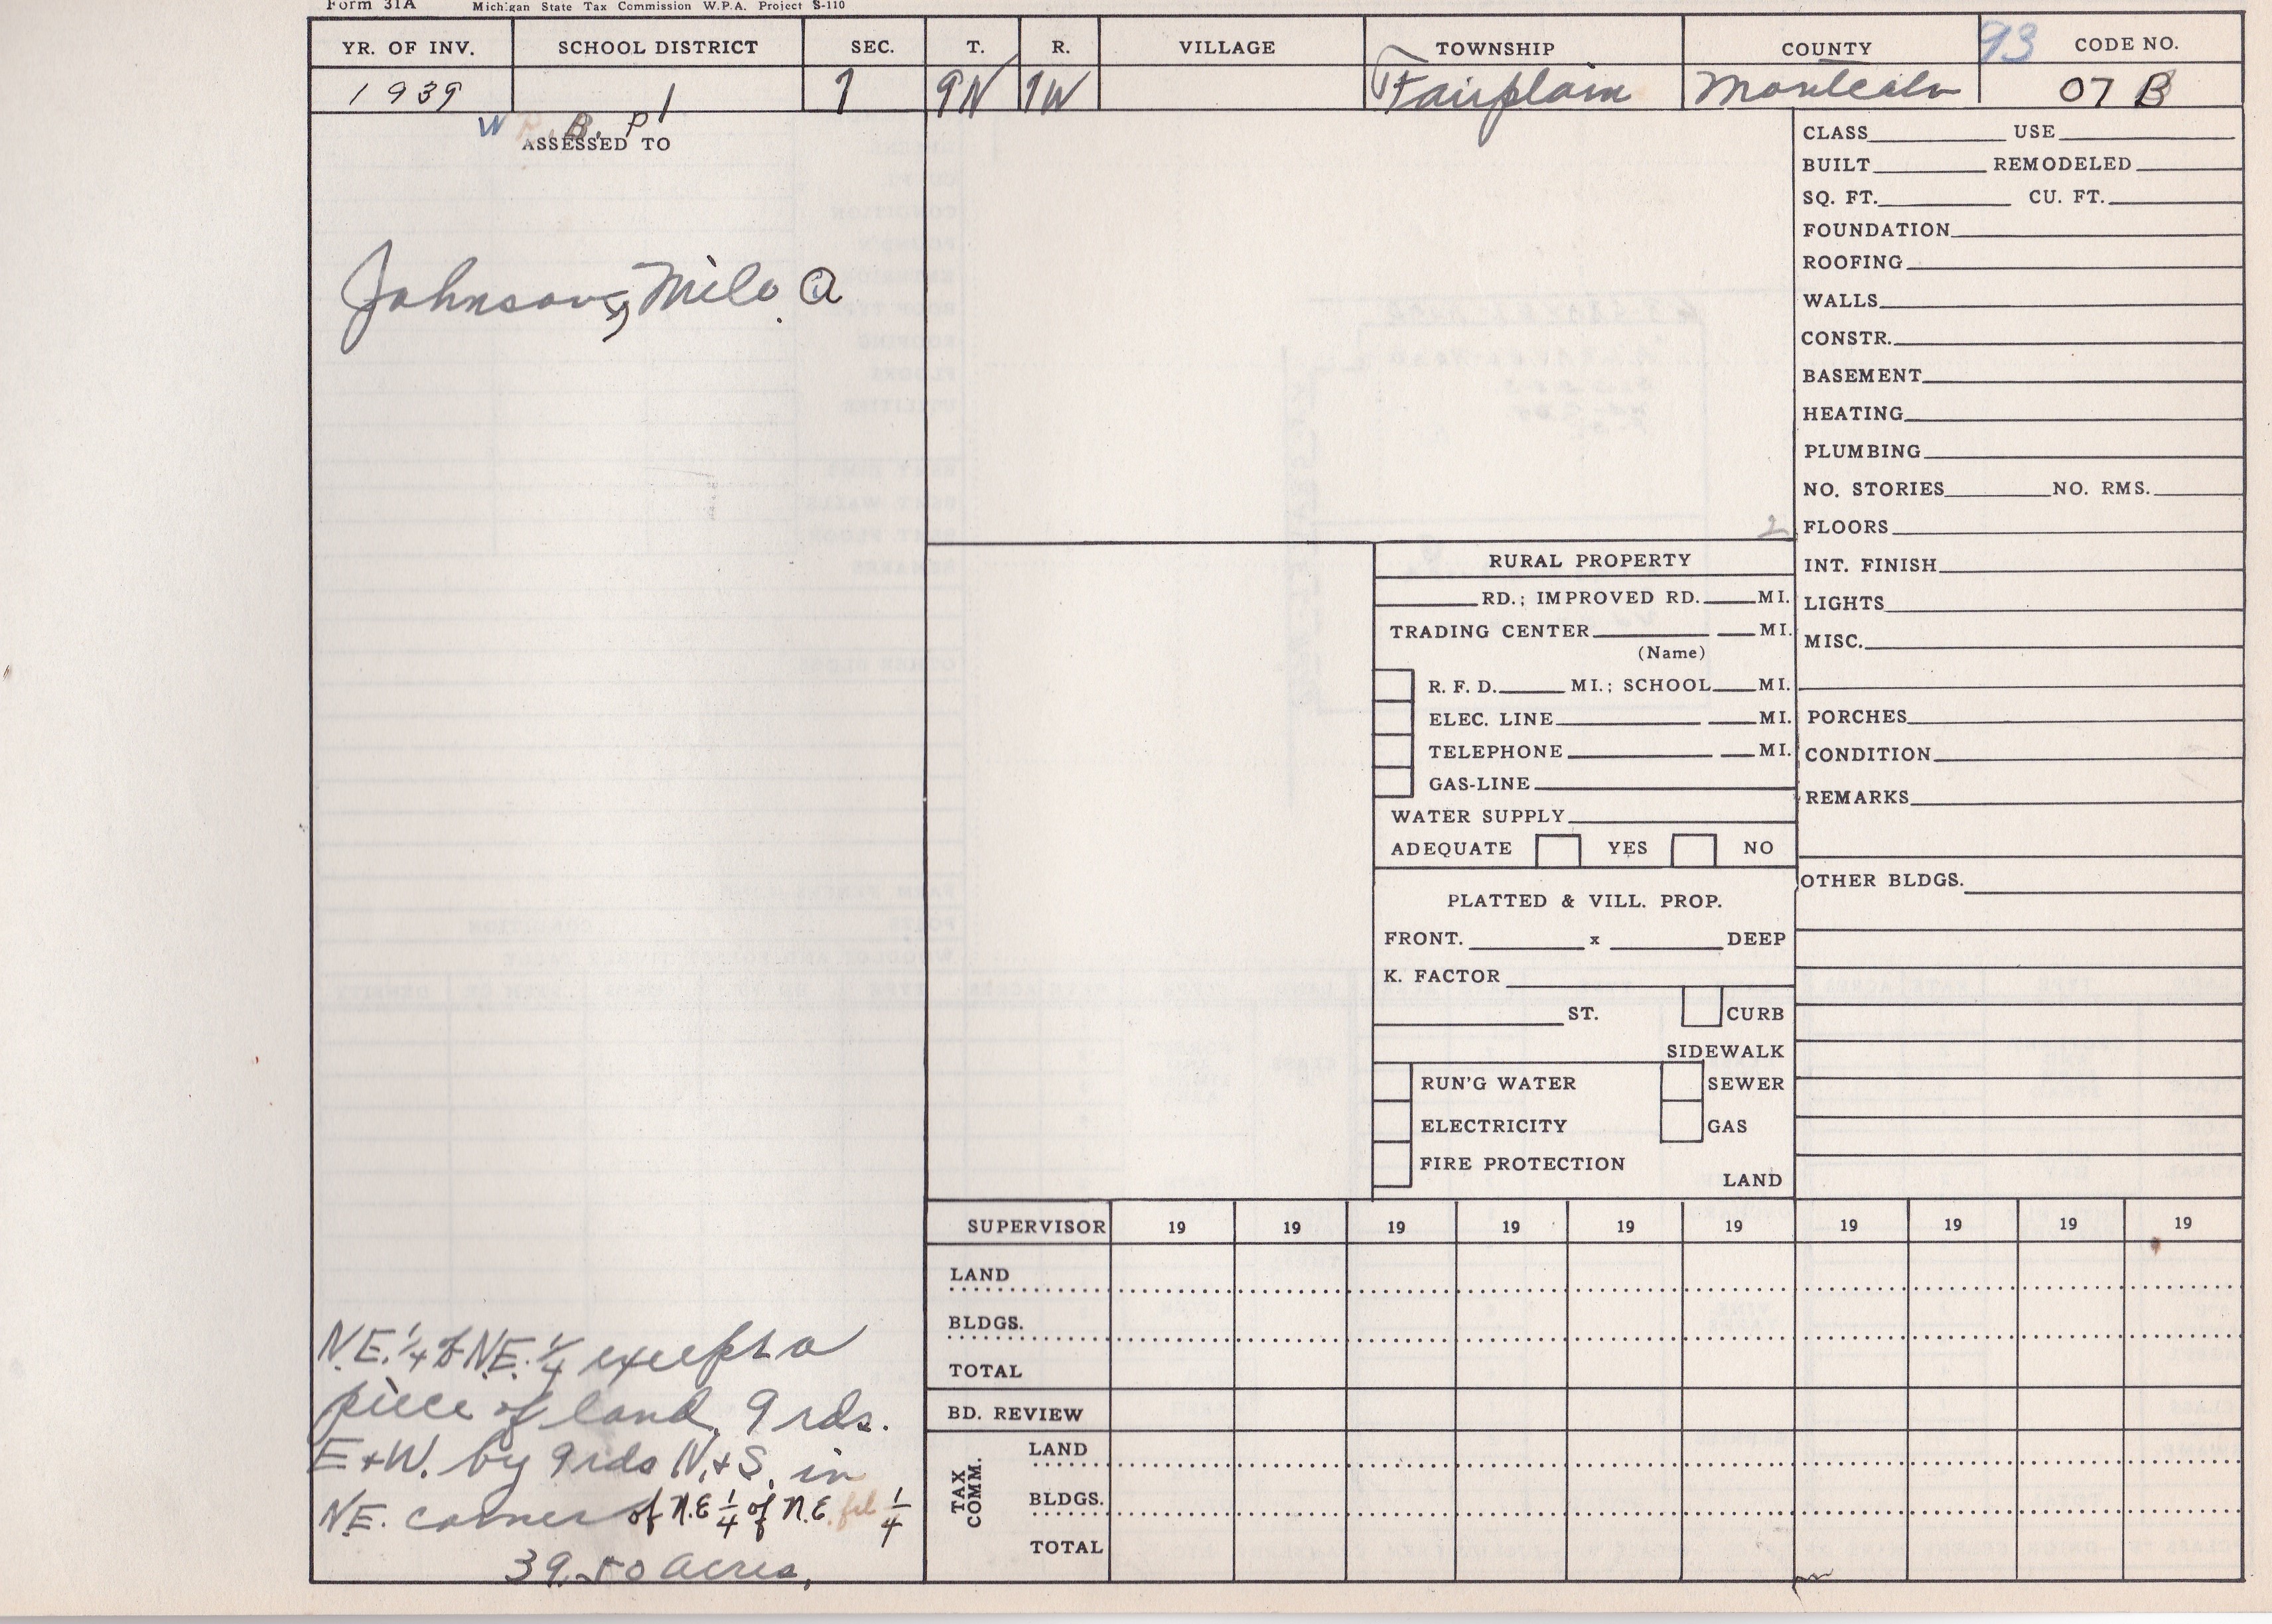 Form 31A Michigan State Tax Commission W.P.A. Project S-110
YR. OF INV. SCHOOL DISTRICT SEC. T. R. VILLAGE TOWNSHIP COUNTY 93 CODE NO.
1939 1 7 9N 7W Fairplain Montcalm 07 B
W B. P 1
ASSESSED TO
Johnson, Milo A
N.E. 1/4 of N.E. 1/4 except a
piece of land, 9 rds.
E+W. by 9 rds N.+S. in
N.E. corner of N.E 1/4 of N.E. frl 1/4
39.50 acres.
2
RURAL PROPERTY
RD.; IMPROVED RD. MI.
TRADING CENTER MI.
(Name)
R. F. D. MI.; SCHOOL MI.
ELEC. LINE MI.
TELEPHONE MI.
GAS-LINE
WATER SUPPLY
ADEQUATE YES NO
PLATTED & VILL. PROP.
FRONT. x DEEP
K. FACTOR
ST. CURB
SIDEWALK
RUN'G WATER SEWER
ELECTRICITY GAS
FIRE PROTECTION
LAND
CLASS USE
BUILT REMODELED
SQ. FT. CU. FT.
FOUNDATION
ROOFING
WALLS
CONSTR.
BASEMENT
HEATING
PLUMBING
NO. STORIES NO. RMS.
FLOORS
INT. FINISH
LIGHTS
MISC.
PORCHES
CONDITION
REMARKS
OTHER BLDGS.
SUPERVISOR 19 19 19 19 19 19 19 19 19 19
LAND
BLDGS.
TOTAL
BD. REVIEW
TAX COMM.
LAND
BLDGS.
TOTAL